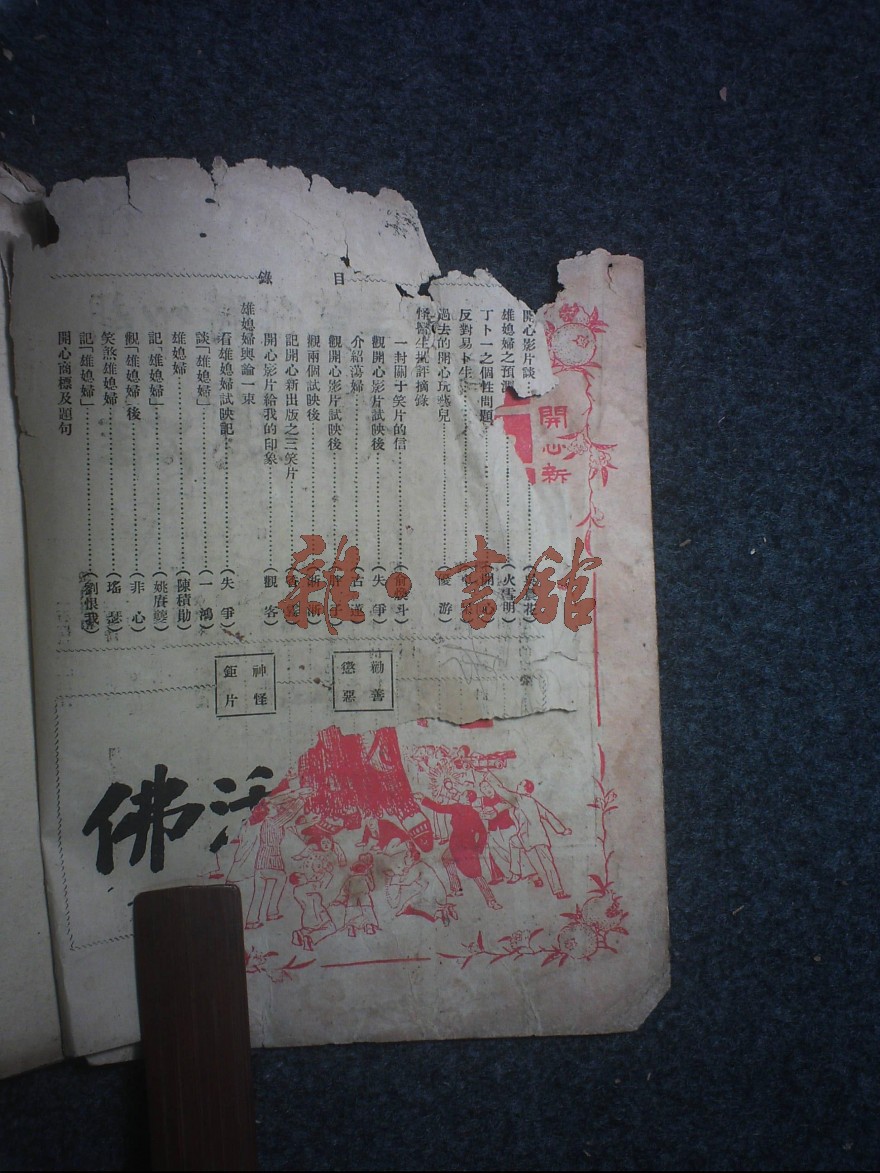 目 錄
開心影片談
雄媳婦之預測
（火雪明）
丁卜一之個性問題
（開心）
反對易卜生
過去的開心玩藝兒
（優游）
怪醫生批評摘錄
一封關于笑片的信
觀開心影片試映後
（失爭）
介紹蕩婦
觀開心影片試映後
觀兩個試映後
（浙浙）
記開心新出版之三笑片
開心影片給我的印象
（觀客）
雄媳婦輿論一束
看雄媳婦試映記
（失爭）
談「雄媳婦」
（一鴻）
雄媳婦
（陳積勛）
記「雄媳婦」
（姚賡夔）
觀「雄媳婦」後
（非心）
笑煞雄媳婦
（瑤瑟）
記「雄媳婦」
（劉恨我）
開心商標及題句
開心新
勸善
懲惡
神怪
鉅片
活佛
雜·書館